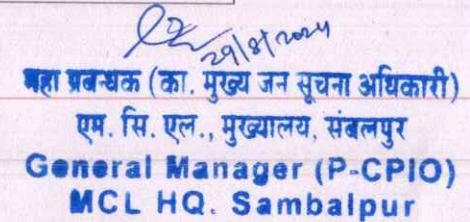 29/8/2024
महा प्रबन्धक (का. मुख्य जन सूचना अधिकारी)
एम. सि. एल., मुख्यालय, संबलपुर
General Manager (P-CPIO)
MCL HQ. Sambalpur